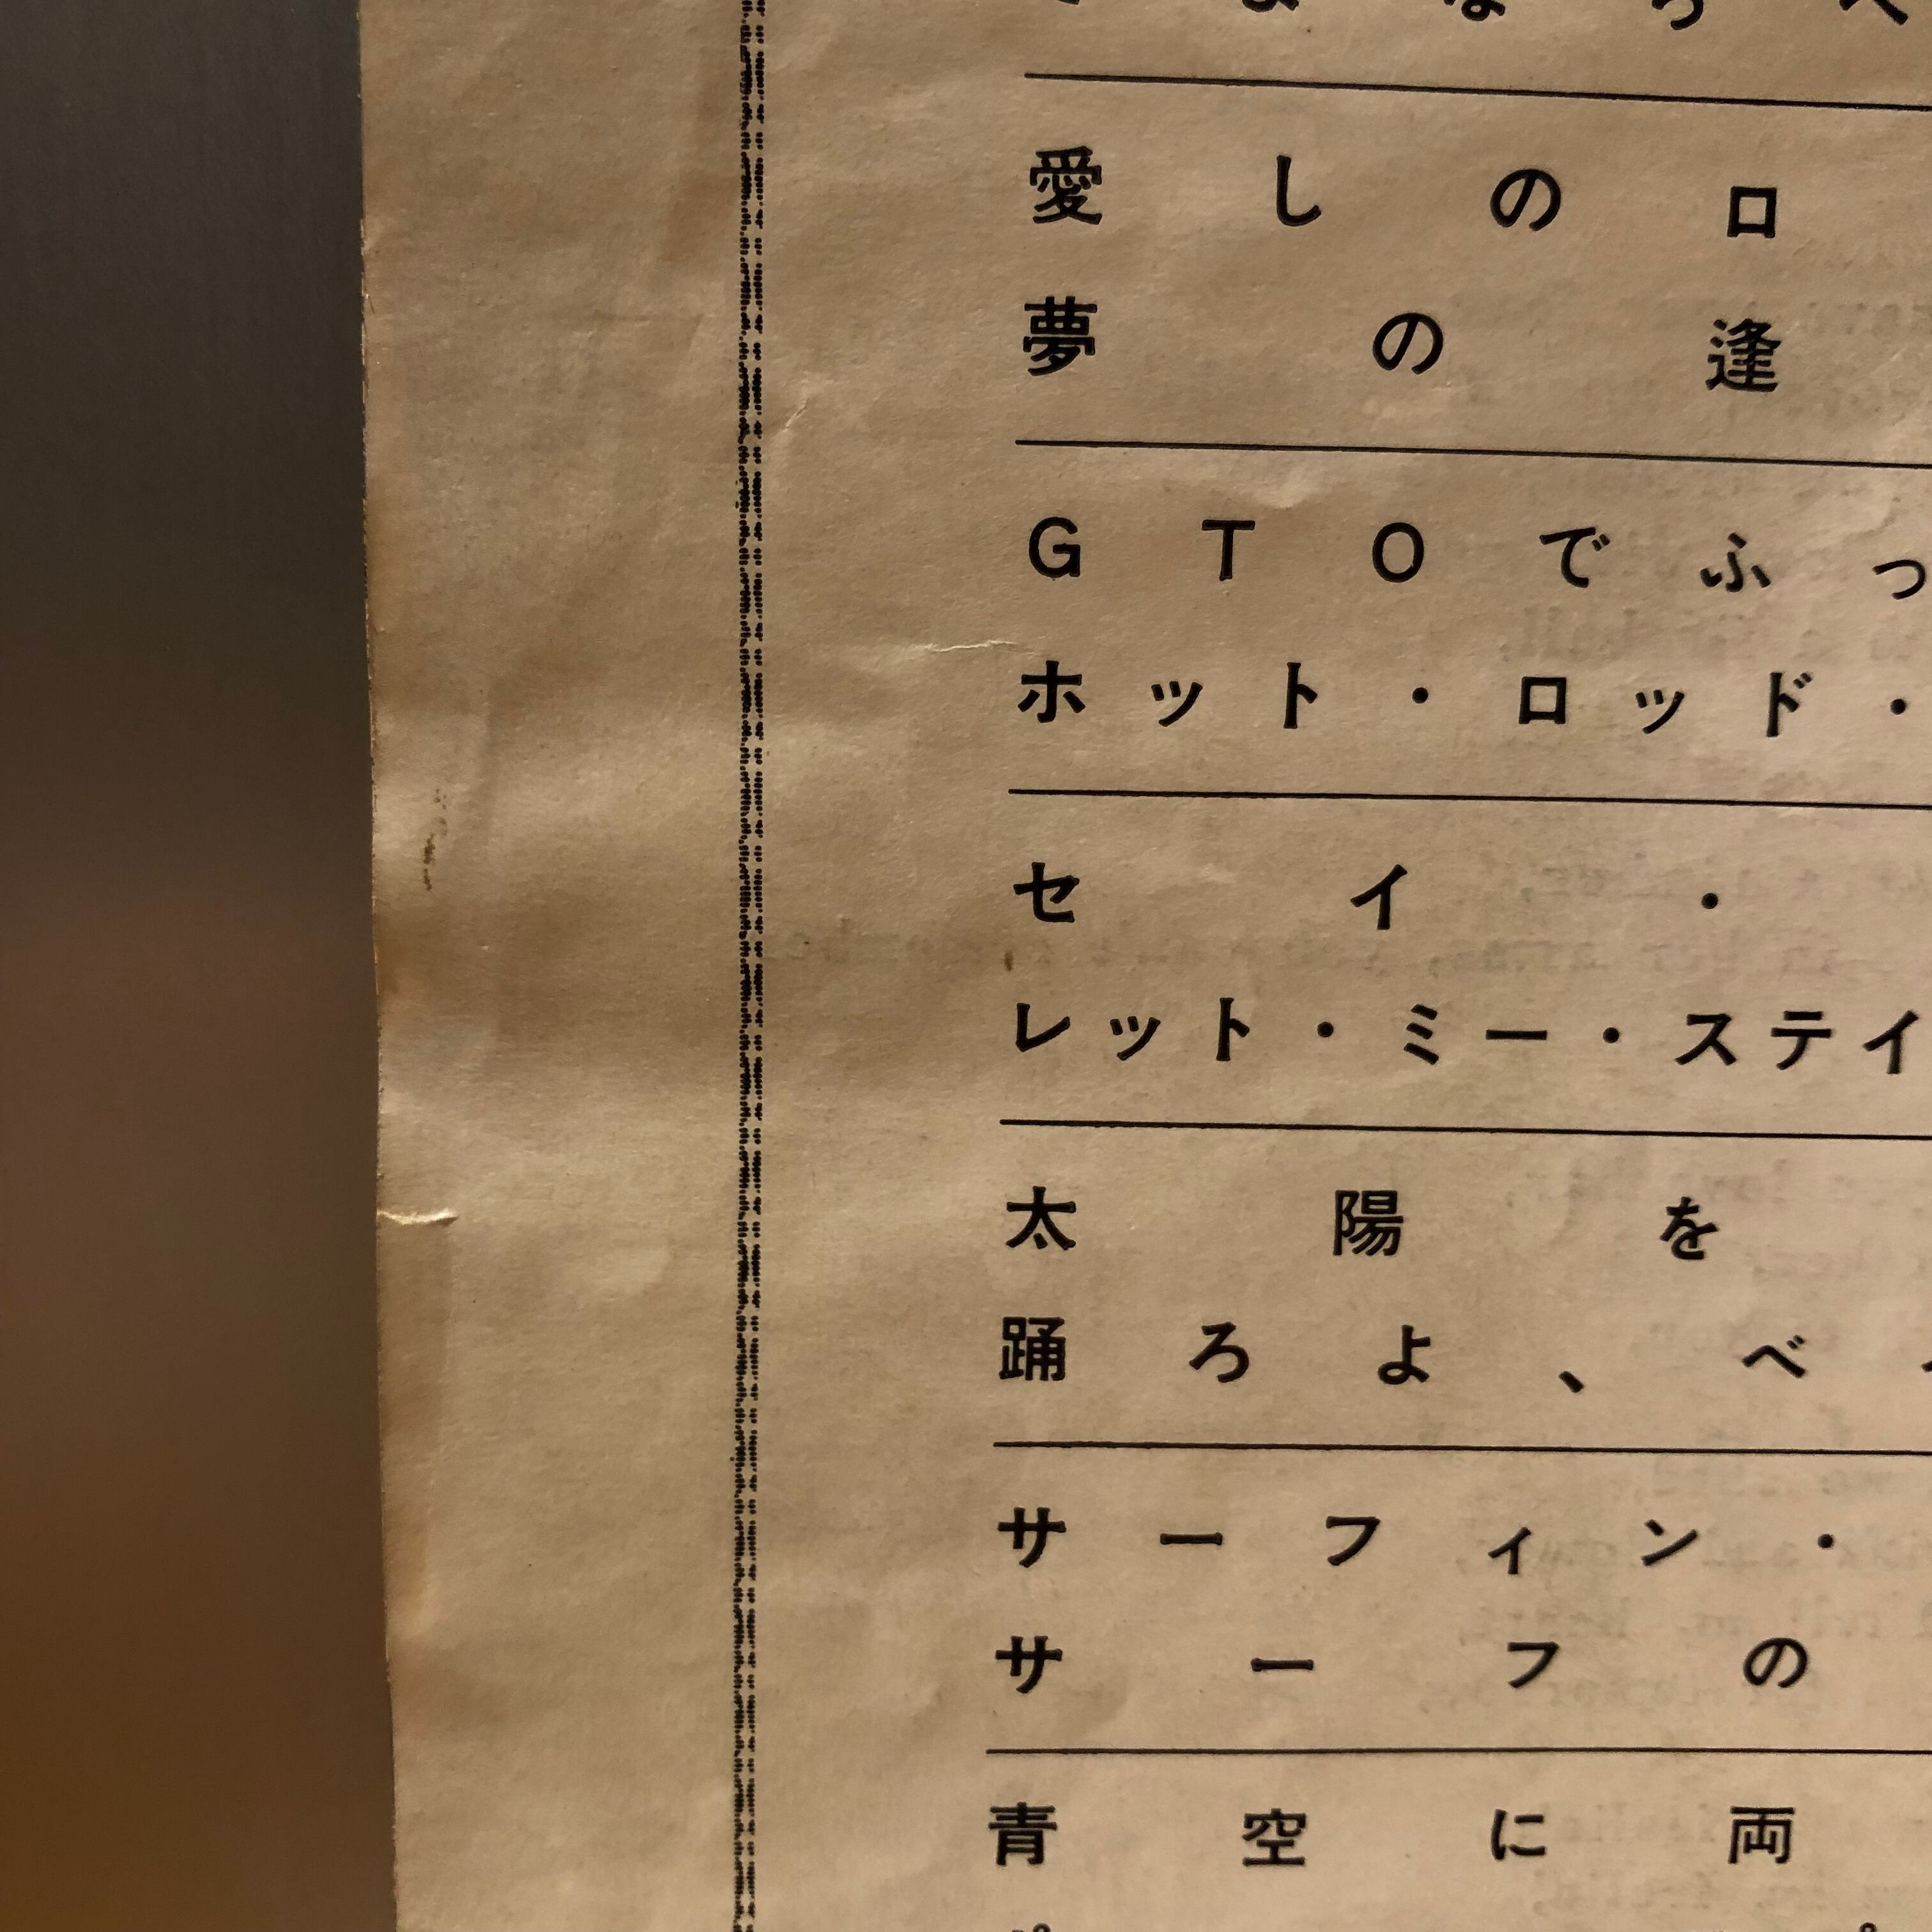 愛しのロ
夢の逢
GTOでふっ
ホット・ロッド・
セイ・
レット・ミー・ステイ
太陽を
踊ろよ、ベ
サーフィン・
サーフの
青空に両